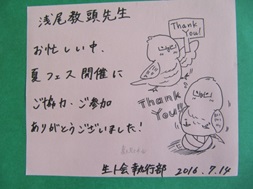 浅尾教頭先生
お忙しい中、
夏フェス開催に
ご協力・ご参加
ありがとうございました!
Thank
You!
Thank
You!
生ト会執行部 2016.7.14